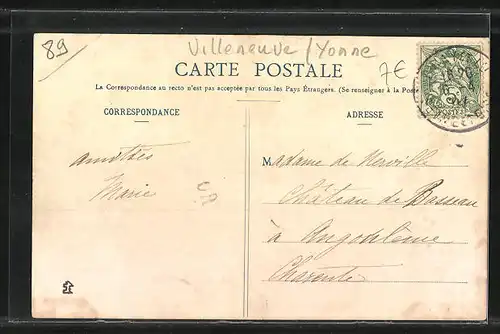 89
Villeneuve / Yonne
CARTE POSTALE
7€
La Correspondance au recto n'est pas acceptée par tous les Pays Étrangers. (Se renseigner à la Poste
CORRESPONDANCE
ADRESSE
amitiés
Marie
Madame de Nerville
Château de Basseau
à Angoulême
Charente